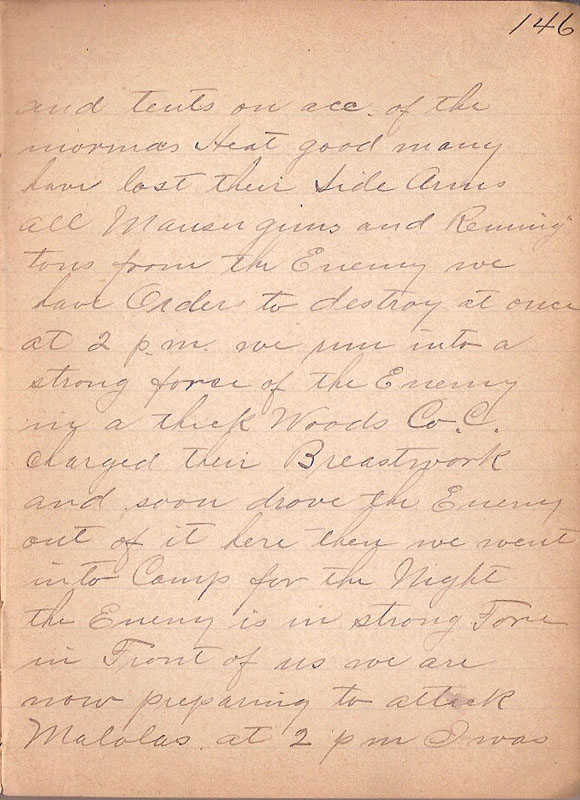 146
and tents on acc. of the
mormas Heat good many
have lost their Side Arms
all Mauser guns and Reming
tons from the Enemy we
have Orders to destroy at once
at 2 p.m. we run into a
strong forse of the Enemy
in a thick Woods Co. C.
charged their Breastwork
and soon drove the Enemy
out of it here then we went
into Camp for the Night
the Enemy is in strong Forse
in Front of us we are
now preparing to attack
Malolas at 2 pm I was